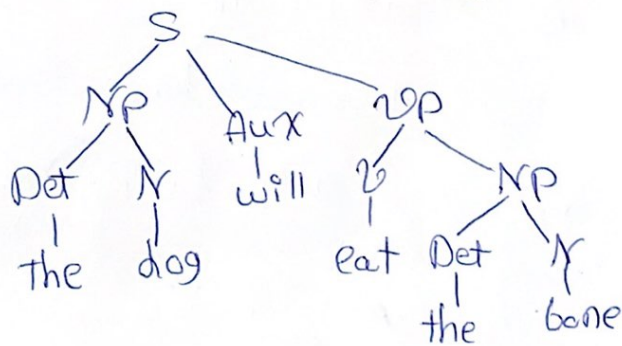 S
NP Aux VP
Det N will V NP
the dog eat Det N
the bone